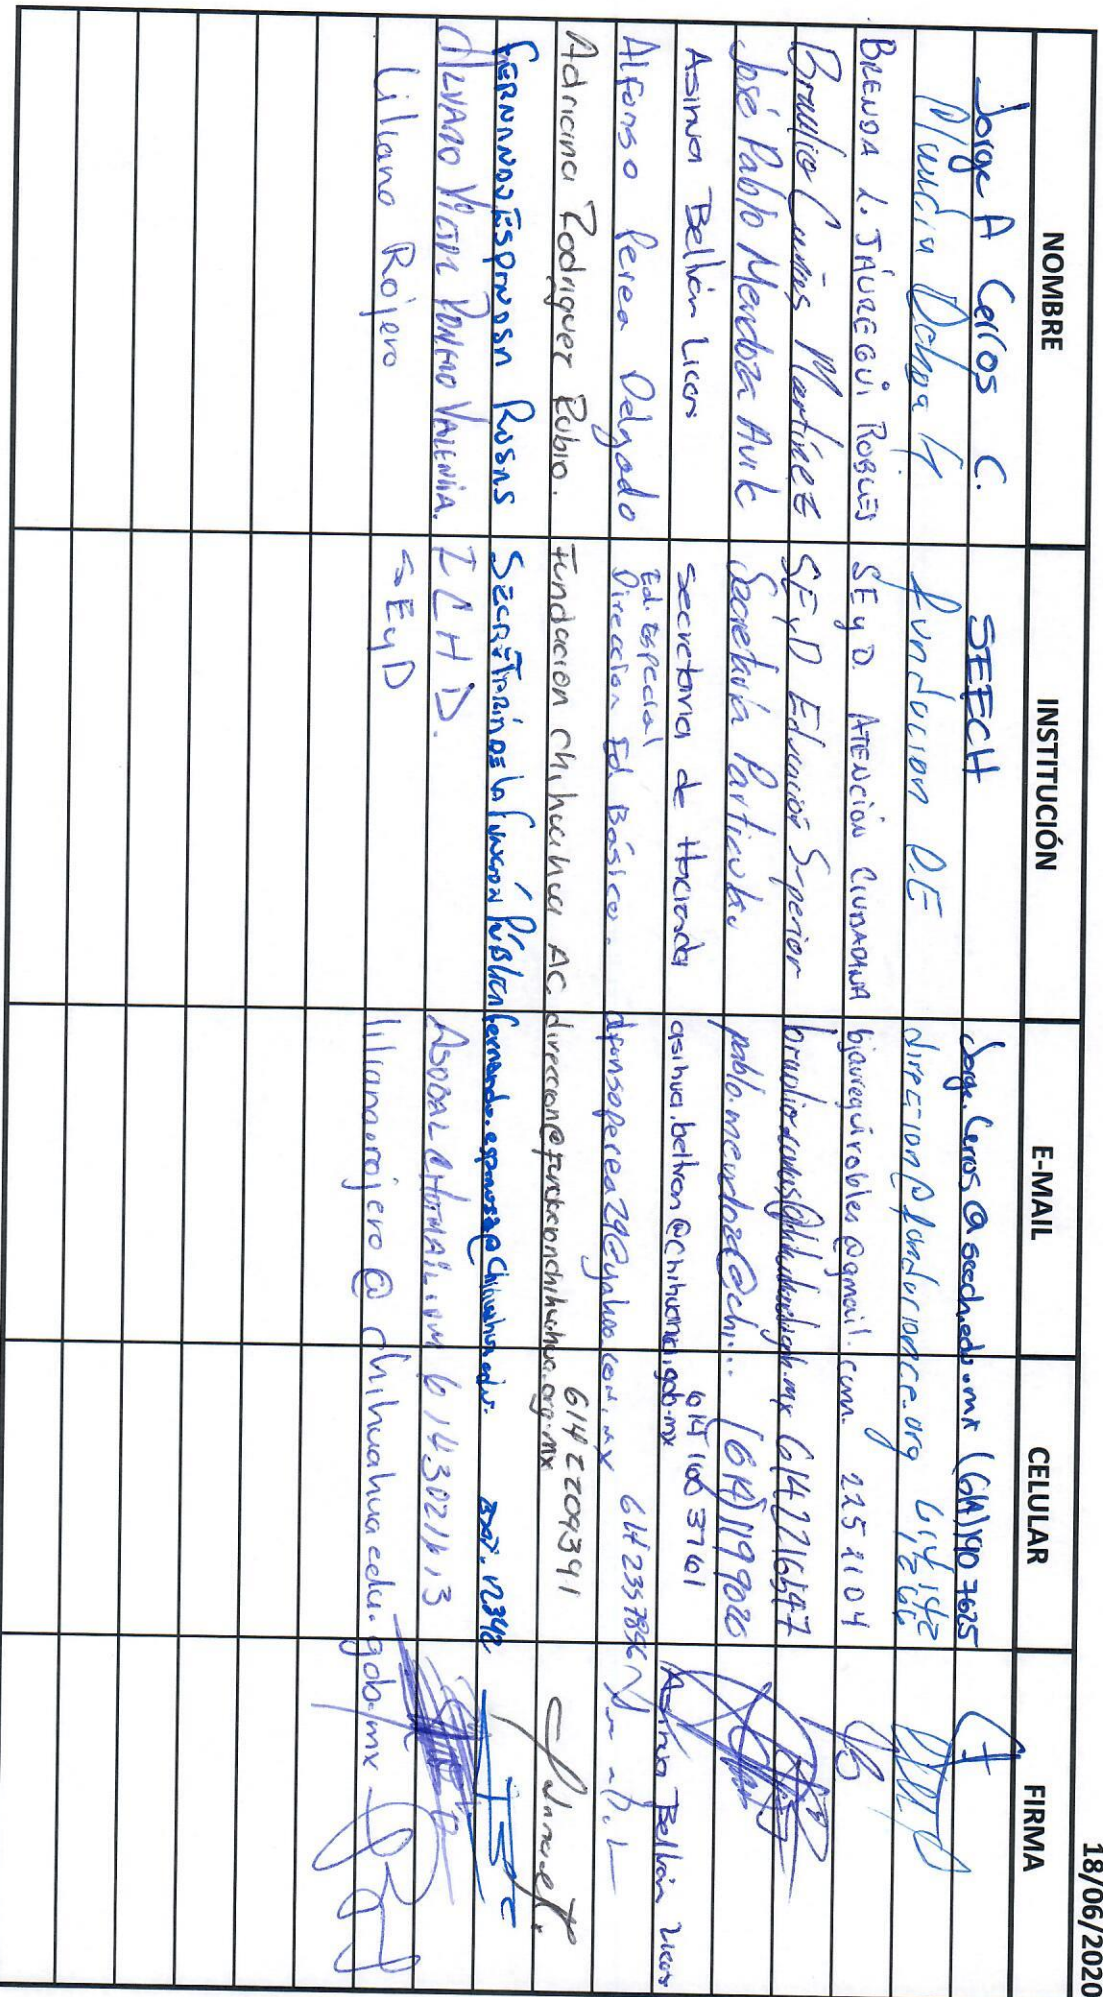 18/06/2020
NOMBRE INSTITUCIÓN E-MAIL CELULAR FIRMA
Jorge A Cerros C. SEECH Jorge.Cerros@seech.edu.mx (614)190 7625
Ochoa H fundacion direccion@
BRENDA L. JÁUREGUI ROBLES SEyD. ATENCIÓN CIUDADANA bjaureguirobles@gmail.com. 225 1104
Braulio Martínez SEyD Educación Superior 614 2216547
José Pablo Mendoza Avila Secretaría Particular pablo.mendoza@chi... (614)1199020
Asinua Beltrán Licon Secretaria de Hacienda asinua.beltran@chihuahua.gob.mx 614 160 3761 Asinua Beltrán
Alfonso Perea Delgado Ed. Especial Direccion Ed. Básica. alfonsoperea29@yahoo.com.mx 614 2357856
Adriana Rodriguez Rubio. Fundacion Chihuahua AC. direccion@fundacionchihuahua.org.mx 614 2209391
FERNANDO ESPINOSA ROSAS SECRETARÍA DE LA FUNCIÓN PÚBLICA EXT. 12342
ALVARO VICTOR ROMERO VALENCIA. ICHD. 6143021613
Liliana Rojero SEyD liliana.rojero@chihuahuaedu.gob.mx